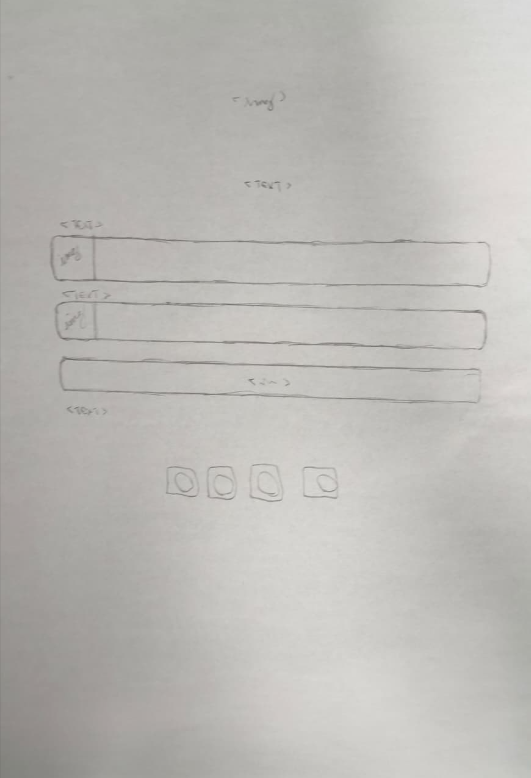 <img>
<TEXT>
<TEXT>
img
<TEXT>
img
<TEXT>